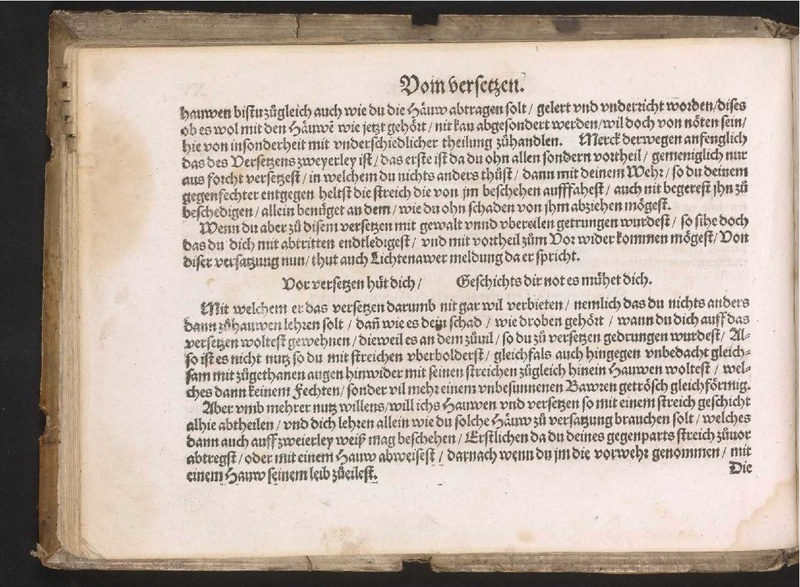 Vom versetzen.
hauwen bistu zůgleich auch wie du die Häuw abtragen solt / gelert vnd vnderricht worden / dises
ob es wol mit den Häuwē wie jetzt gehört / nit kan abgesondert werden / wil doch von nöten sein /
hie von insonderheit mit vnderschiedlicher theilung zůhandlen. Merck derwegen anfenglich
das des Versetzens zweyerley ist / das erste ist da du ohn allen sondern vortheil / gemeniglich nur
aus forcht versetzest / in welchem du nichts anders thůst / dann mit deinem Wehr / so du deinem
gegenfechter entgegen heltst die streich die von jm beschehen aufffahest / auch nit begerest jhn zů
beschedigen / allein benüget an dem / wie du ohn schaden von jhm abziehen mögest.
Wenn du aber zů disem versetzen mit gewalt vnnd vbereilen getrungen wurdest / so sihe doch
das du dich mit abtritten endtledigest / vnd mit vortheil zům Vor wider kommen mögest / Von
diser versatzung nun / thut auch Lichtenawer meldung da er spricht.
Vor versetzen hüt dich / Geschichts dir not es mühet dich.
Mit welchem er das versetzen darumb nit gar wil verbieten / nemlich das du nichts anders
dann zůhauwen lehren solt / dañ wie es dein schad / wie droben gehört / wann du dich auff das
versetzen woltest gewehnen / dieweil es an dem zůuil / so du zů versetzen gedrungen wurdest / Al-
so ist es nicht nutz so du mit streichen vberbolderst / gleichfals auch hingegen vnbedacht gleich-
sam mit zůgethanen augen hinwider mit seinen streichen zůgleich hinein Hauwen woltest / wel-
ches dann keinem Fechten / sonder vil mehr einem vnbesunnenen Bawren getrösch gleichförmig.
Aber vmb mehrer nutz willens / will ichs Hauwen vnd versetzen so mit einem streich geschicht
alhie abtheilen / vnd dich lehren allein wie du solche Häuw zů versatzung brauchen solt / welches
dann auch auff zweierley weiß mag beschehen / Erstlichen da du deines gegenparts streich zůuor
abtregst / oder mit einem Hauw abweisest / darnach wenn du jm die vorwehr genommen / mit
einem Hauw seinem leib zůeilest.
Die